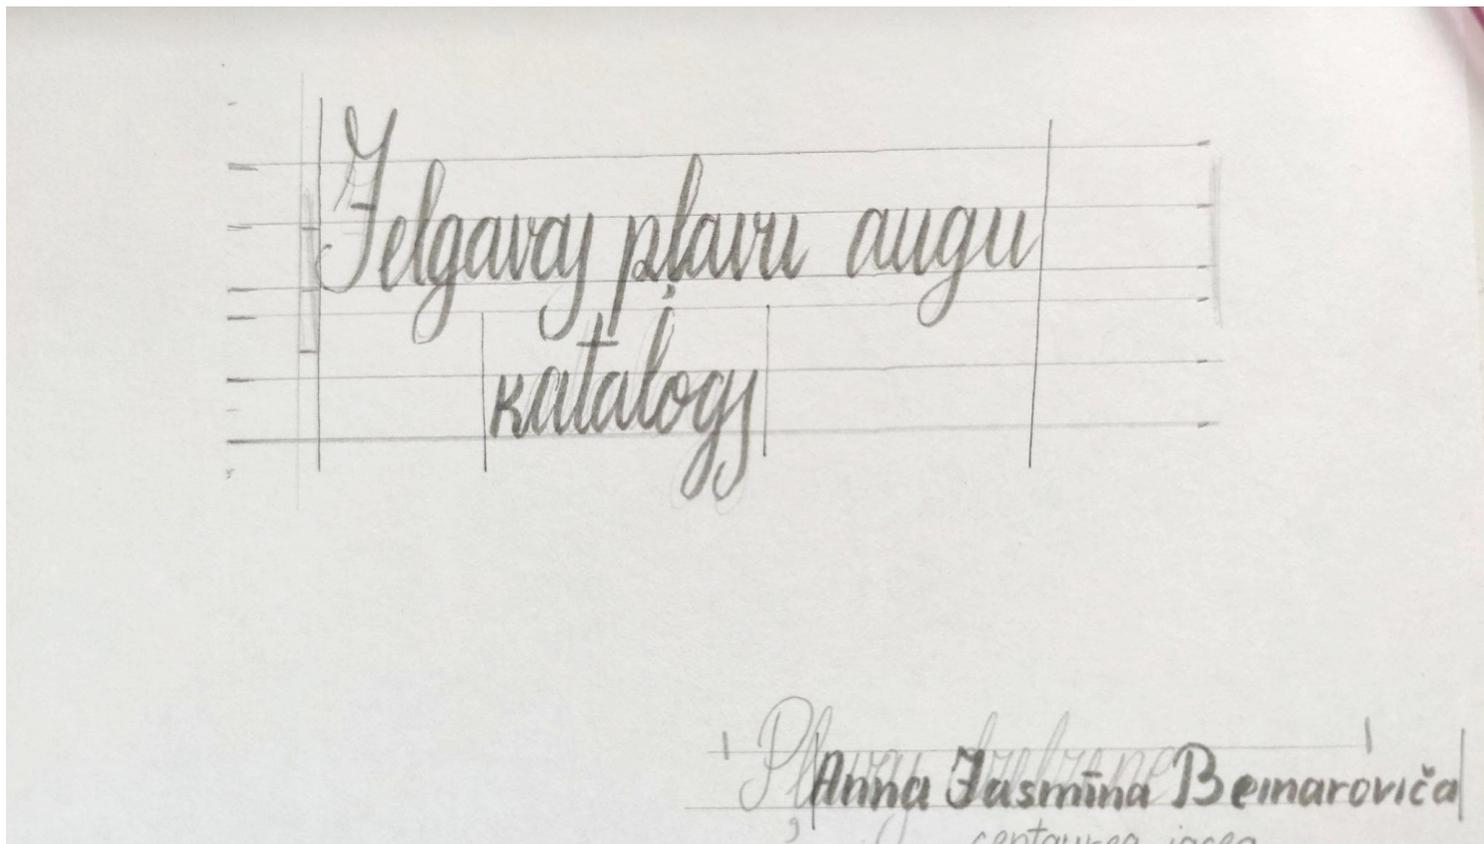 Jelgavas pļavu augu
katalogs
Pļavas dzelzene
Anna Jasmīna Beinaroviča
centaurea jacea